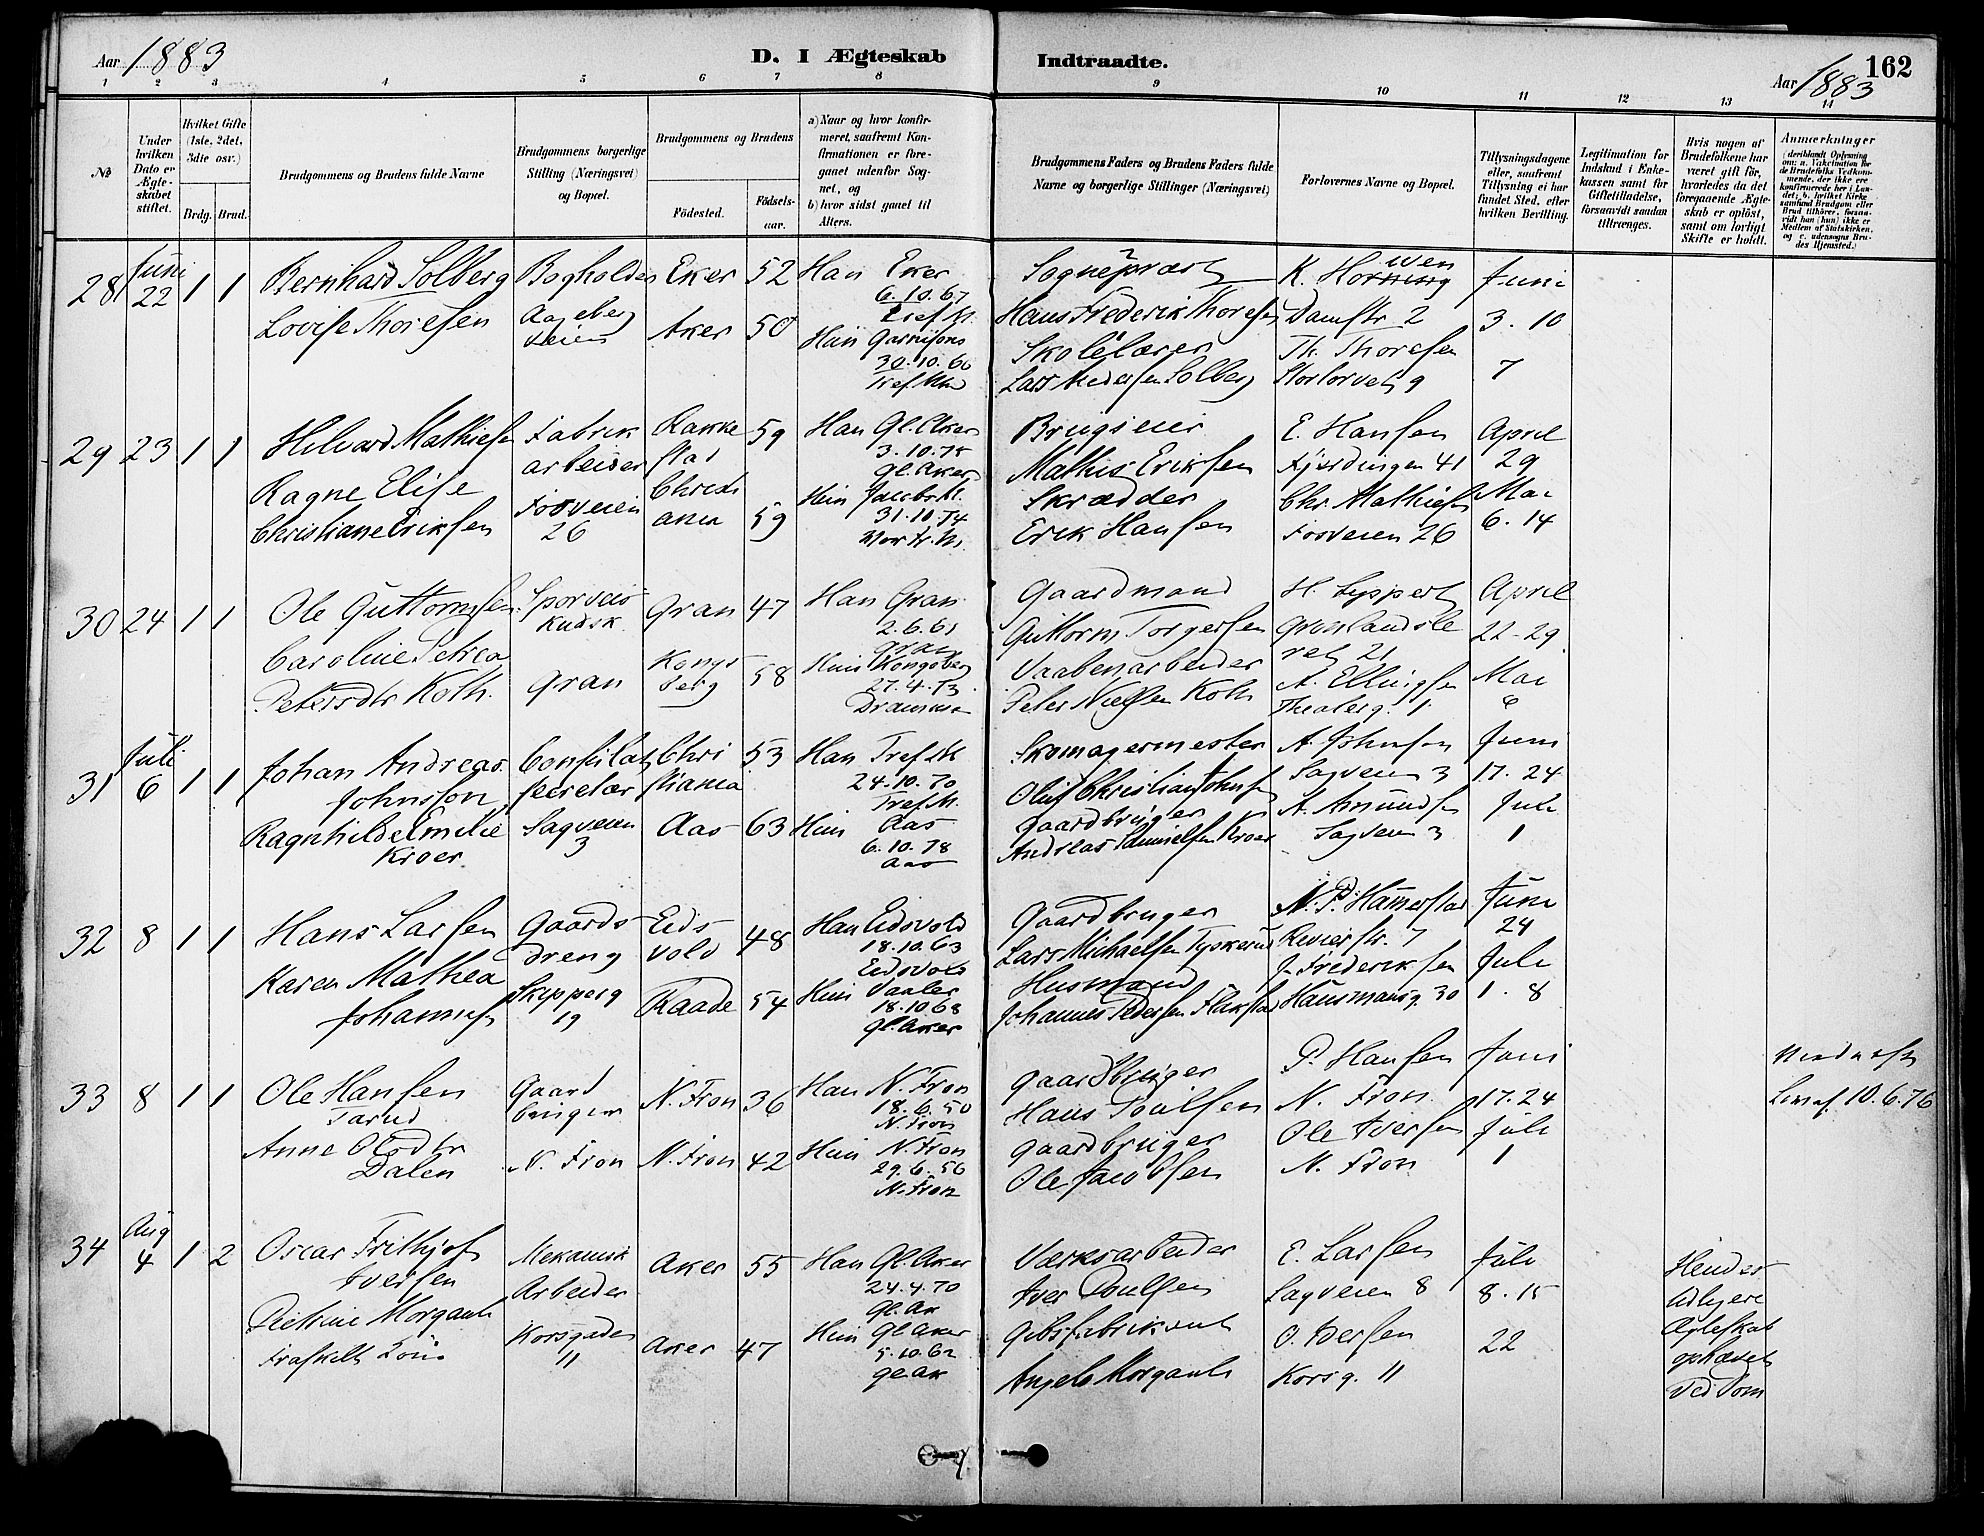 Aar 1883
D. I Ægteskab Indtraadte.
Aar 1883
162
1 2 3 4 5 6 7 8 9 10 11 12 13 14
No
Under hvilken Dato er Ægteskabet stiftet.
Hvilket Gifte (1ste, 2det, 3die osv.)
Brdg. Brud.
Brudgommens og Brudens fulde Navne
Brudgommens borgerlige Stilling (Næringsvei) og Bopæl.
Brudgommens og Brudens
Fødested.
Fødselsaar.
a) Naar og hvor konfirmeret, saafremt Konfirmationen er foregaaet udenfor Sognet, og
b) hvor sidst gaaet til Alters.
Brudgommens Faders og Brudens Faders fulde Navne og borgerlige Stillinger (Næringsvei)
Forlovernes Navne og Bopæl.
Tillysningsdagene eller, saafremt Tillysning ei har fundet Sted, efter hvilken Bevilling.
Legitimation for Indskud i Enkekassen samt for Giftetilladelse, forsaavidt saadan tiltrænges.
Hvis nogen af Brudefolkene har været gift før, hvorledes da det foregaaende Ægteskab er opløst, samt om lovligt Skifte er holdt.
Anmerkninger
28 Juni 22 1 1
Bernhard Solberg
Lovise Thoresen
Bogholder
Eker 52
Aker 50
Han Eker
6.10.67
Tref.K.
Hun Garnisons
30.10.66
Sognepræst
Hans Frederik Thoresen
Skolelærer
Lars Pedersen Solberg
K. Hornung
Damstr 2
Th. Thoresen
Stortorvet 9
Juni
3. 10
7
29 23 1 1
Hilvard Mathiesen
Ragne Elise
Christiane Eriksen
Fabrik
arbeider
Fosveien
26
Rakke
stad 59
Christi
ania 59
Han Gl. Aker
3.10.75
Gl. Aker
Hun Jacobs K.
31.10.74
Vor Fr. K.
Brugseier
Mathis Eriksen
Skrædder
Erik Hansen
E. Hansen
Fjerdingen 41
Chr. Mathiesen
Fosveien 26
April
29
Mai
6. 14
30 24 1 1
Ole Guttormsen
Caroline Petrea
Petersdtr Koth.
Sporveis
Kudsk
Gran
Gran 47
Kongs
berg 58
Han Gran
2.6.61
Gran
Hun Kongsberg
27.4.73
Drammen
Gaardmand
Guttorm Torgersen
Vaabenarbeider
Peter Nielsen Koth
H. Lyppert
Grønlandsle
ret 21
A. Ellingsen
Theaterg. 1
April
22-29
Mai
6
31 Juli 6 1 1
Johan Andreas
Johnsson
Ragnhilde Emelie
Kroer
Consulats
secretær
Sagveien
3
Chri
stiania 53
Aas 63
Han Tref.K
24.10.70
Tref.K.
Hun Aas
6.10.78
Aas
Skomagermester
Oluf Christian Johnsen
Gaardbruger
Andreas Samuelsen Kroer
A. Johnsen
Sagveien 3
A. Amundsen
Sagveien 3
Juni
17. 24
Juli
1
32 8 1 1
Hans Larsen
Karen Mathea
Johannesen
Gaards
dreng
Skipperg
19
Eids
vold 48
Raade 54
Han Eidsvold
18.10.63
Eidsvold
Hun Vaaler
18.10 68
Gl. Aker
Gaardbruger
Lars Michaelsen Tyskerud
Husmand
Johannes Pedersen Flakstad
N. P. Hamerstad
Revierstr. 7
J. Frederiksen
Hausmansg. 30
Juni
24
Juli
1. 8
33 8 1 1
Ole Hansen
Tarud
Anne Olsdtr
Dalen
Gaard
bruger
N. Fron
N. Fron 36
N. Fron 42
Han N. Fron
18.6.50
N. Fron
Hun N. Fron
29.6.56
N. Fron
Gaardbruger
Hans Poulsen
Gaardbruger
Ole Jacobsen
P. Hansen
N. Fron
Ole Iversen
N. Fron
Juni
17. 24
Juli
1
10.6.76
34 Aug 4 1 2
Oscar Frithjof
Iversen
Morganti
Fraskilt
Mekanisk
Arbeider
Korsgaden
11
Aker 55
Aker 47
Han Gl. Aker
24.4.70
Gl. Ak
Hun Gl Aker
5.10.62
Gl. Ak
Værksarbeider
Iver Poulsen
Gibsfabrikant
Angelo Morganti
E. Larsen
Sagveien 8
O. Iversen
Korsg. 11
Juli
8. 15
22
Hendes
tidligere
Ægteskab
ophævet
ved Dom